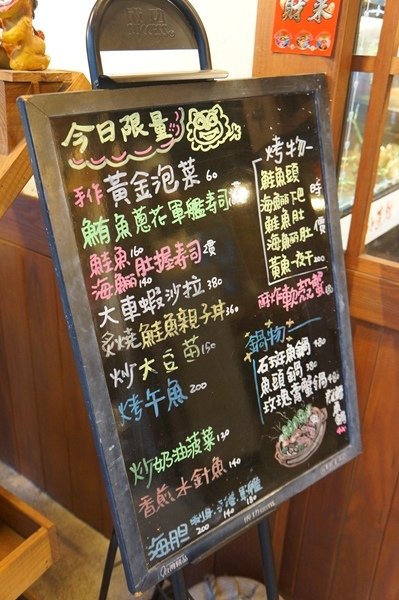 財 來
今日限量
手作 黃金泡菜 60
鮪魚蔥花軍艦壽司
鮭魚 160
海鱺 140 肚握壽司 價
大車蝦沙拉 380
炙燒鮭魚親子丼 360
炒大豆苗 150
烤午魚 200
炒奶油菠菜 130
香煎水針魚 140
海胆 200 140 180
烤物
鮭魚頭
海鱺下巴
鮭魚肚
海鱺肚
時價
黃魚一夜干 200
酥炸軟殼蟹
鍋物
石斑魚鍋 480
魚頭鍋 380
玫瑰青蟹鍋 480